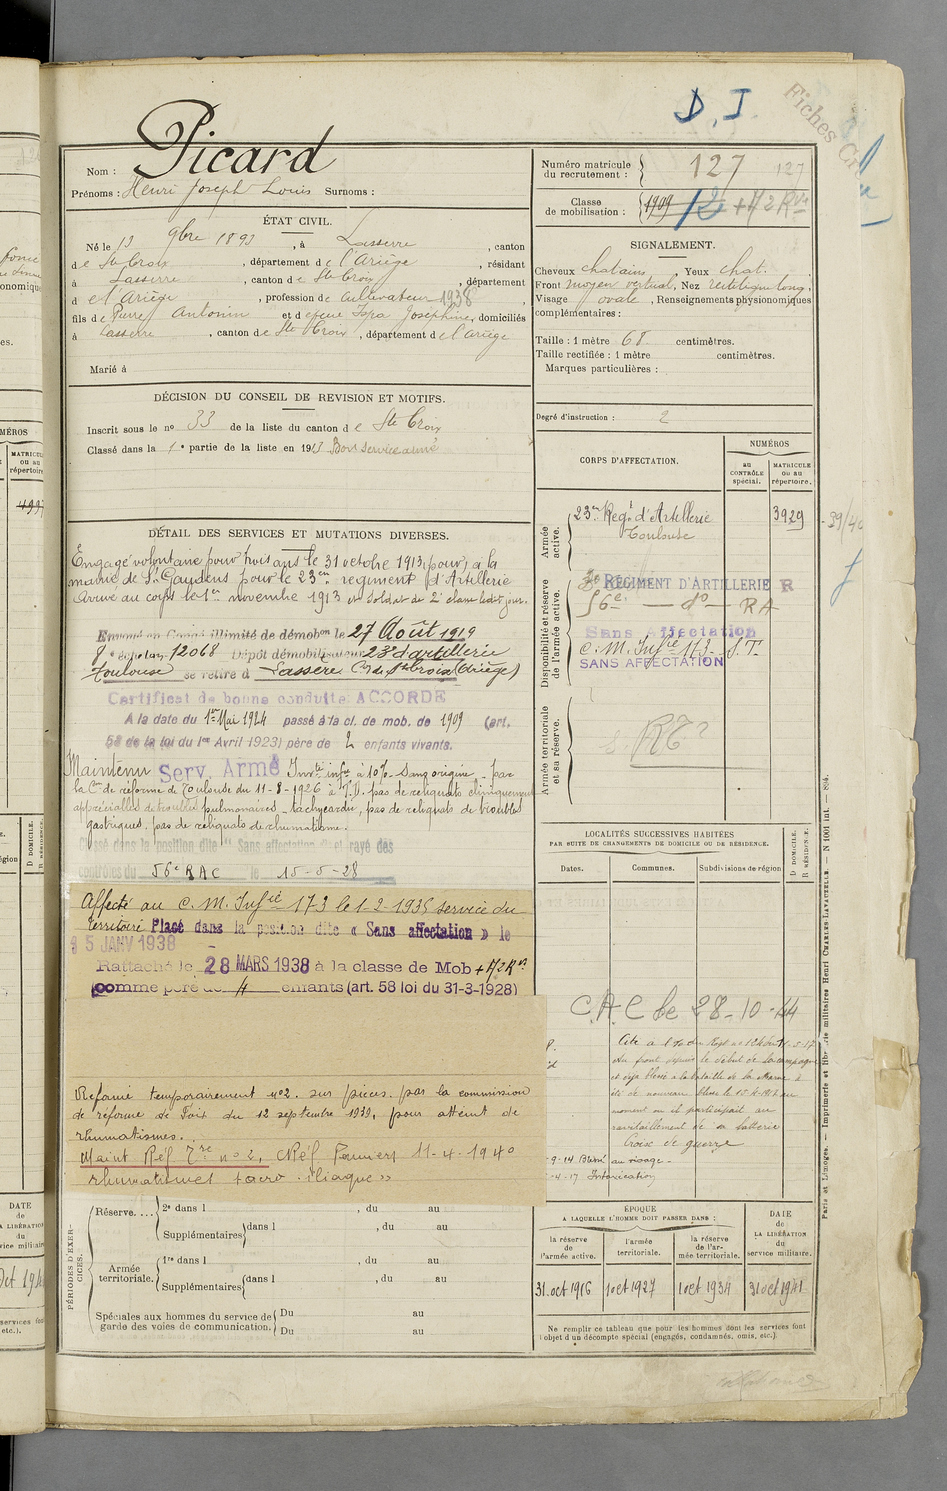 D. I
Fiches
Nom : Picard
Prénoms : Henri Joseph Louis Surnoms :
Numéro matricule du recrutement : 127 127
Classe de mobilisation : 1909 12 + 1/2 Rve
ÉTAT CIVIL.
Né le 13 9bre 1893, à Lasserre, canton
de Ste Croix, département de l'Ariège, résidant
à Lasserre, canton de Ste Croix, département
d el'Ariège, profession de cultivateur 1938
fils de Pierre Antonin et de feue Joséphine, domiciliés
à Lasserre, canton de Ste Croix, département de l'Ariège
Marié à
SIGNALEMENT.
Cheveux chatains, Yeux chat.
Front moyen vertical, Nez rectiligne long,
Visage ovale, Renseignements physionomiques
complémentaires :
Taille : 1 mètre 68 centimètres.
Taille rectifiée : 1 mètre centimètres.
Marques particulières :
Degré d'instruction : 2
DÉCISION DU CONSEIL DE REVISION ET MOTIFS.
Inscrit sous le no 33 de la liste du canton de Ste Croix
Classé dans la 1e partie de la liste en 1913 Bon service armé
DÉTAIL DES SERVICES ET MUTATIONS DIVERSES.
Engagé volontaire pour trois ans le 31 octobre 1913, pour, à la
mairie de St Gaudens pour le 23em régiment d'Artillerie
Arrivé au corps le 1er novembre 1913 et soldat de 2e classe ledit jour.
Envoyé en Congé illimité de démobon le 27 Août 1919
8e échelon 12068 Dépôt démobilisateur 23e d'artillerie
Toulouse se retire à Lassère Con de Ste Croix (Ariège)
Certificat de bonne conduite ACCORDÉ
A la date du 1er Mai 1924 passé à la cl. de mob. de 1909 (art.
58 de la loi du 1er Avril 1923) père de 2 enfants vivants.
Maintenu Serv. Armé Invté infre à 10% - Sans origine - par
la Con de réforme de Toulouse du 11-8-1926 à T.D. pas de reliquats cliniquement
appréciables de troubles pulmonaires - tachycardie, pas de reliquats de troubles
gastriques, pas de reliquats de rhumatisme.
Classé dans la position dite "Sans affectation" et rayé des
contrôles du 56e RAC le 15-5-28
Affecté au C. M. Infie 173 le 1-2-1935 service du
Territoire Placé dans la position dite « Sans affectation » le
5 JANV 1938
Rattaché le 28 MARS 1938 à la classe de Mob + 1/2 Rve
comme père de 4 enfants (art. 58 loi du 31-3-1928)
Réformé temporairement no 2. sur pièces. par la commission
de réforme de Foix du 12 septembre 1939, pour atteint de
rhumatismes.
Maint Réf Tre no 2, CRéf Pamiers 11-4-1940
rhumatismes sacro-iliaque »
CORPS D'AFFECTATION.
NUMÉROS
au CONTRÔLE spécial.
MATRICULE OU AU répertoire.
Armée active.
23em Regt d'Artillerie 3929
Toulouse
39/40
Disponibilité et réserve de l'armée active.
RÉGIMENT D'ARTILLERIE R
56e — do — RA
Sans affectation
C. M. Infie 173 - S.T.
SANS AFFECTATION
Armée territoriale et sa réserve.
LOCALITÉS SUCCESSIVES HABITÉES
PAR SUITE DE CHANGEMENTS DE DOMICILE OU DE RÉSIDENCE.
Dates. Communes. Subdivisions de région
D DOMICILE. R RÉSIDENCE.
C.A.C le 28-10-44
Au front depuis le début de la campagne
et déjà blessé à la bataille de la Marne a
été de nouveau blessé le 15-4-1917 au
moment où il participait au
ravitaillement de sa batterie
Croix de guerre
-9-14 Blessé au visage -
-4-17 Intoxication
PÉRIODES D'EXERCICES.
Réserve. ...
2e dans l , du au
Supplémentaires dans l , du au
Armée territoriale.
1re dans l , du au
Supplémentaires dans l , du au
Spéciales aux hommes du service de garde des voies de communication. Du au
Du au
ÉPOQUE
A LAQUELLE L'HOMME DOIT PASSER DANS :
la réserve de l'armée active.
l'armée territoriale.
la réserve de l'armée territoriale.
DATE de LA LIBÉRATION du service militaire.
31 oct 1916 1 oct 1927 1 oct 1934 31 oct 1941
Ne remplir ce tableau que pour les hommes dont les services font
l'objet d'un décompte spécial (engagés, condamnés, omis, etc.).
Paris et Limoges. — Imprimerie et librairie militaires Henri CHARLES-LAVAUZELLE. — N 1001 int. —